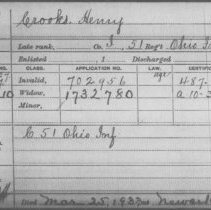 Crooks, Henry
Late rank, Co. I, 51 Reg't Ohio In
Enlisted 1 Discharged
CLASS. APPLICATION NO. LAW.
Invalid, 702956 487-
10 Widow, 1732780 a 10-3
Minor,
C 51 Ohio Inf
Died Mar. 25, 1933 Newark